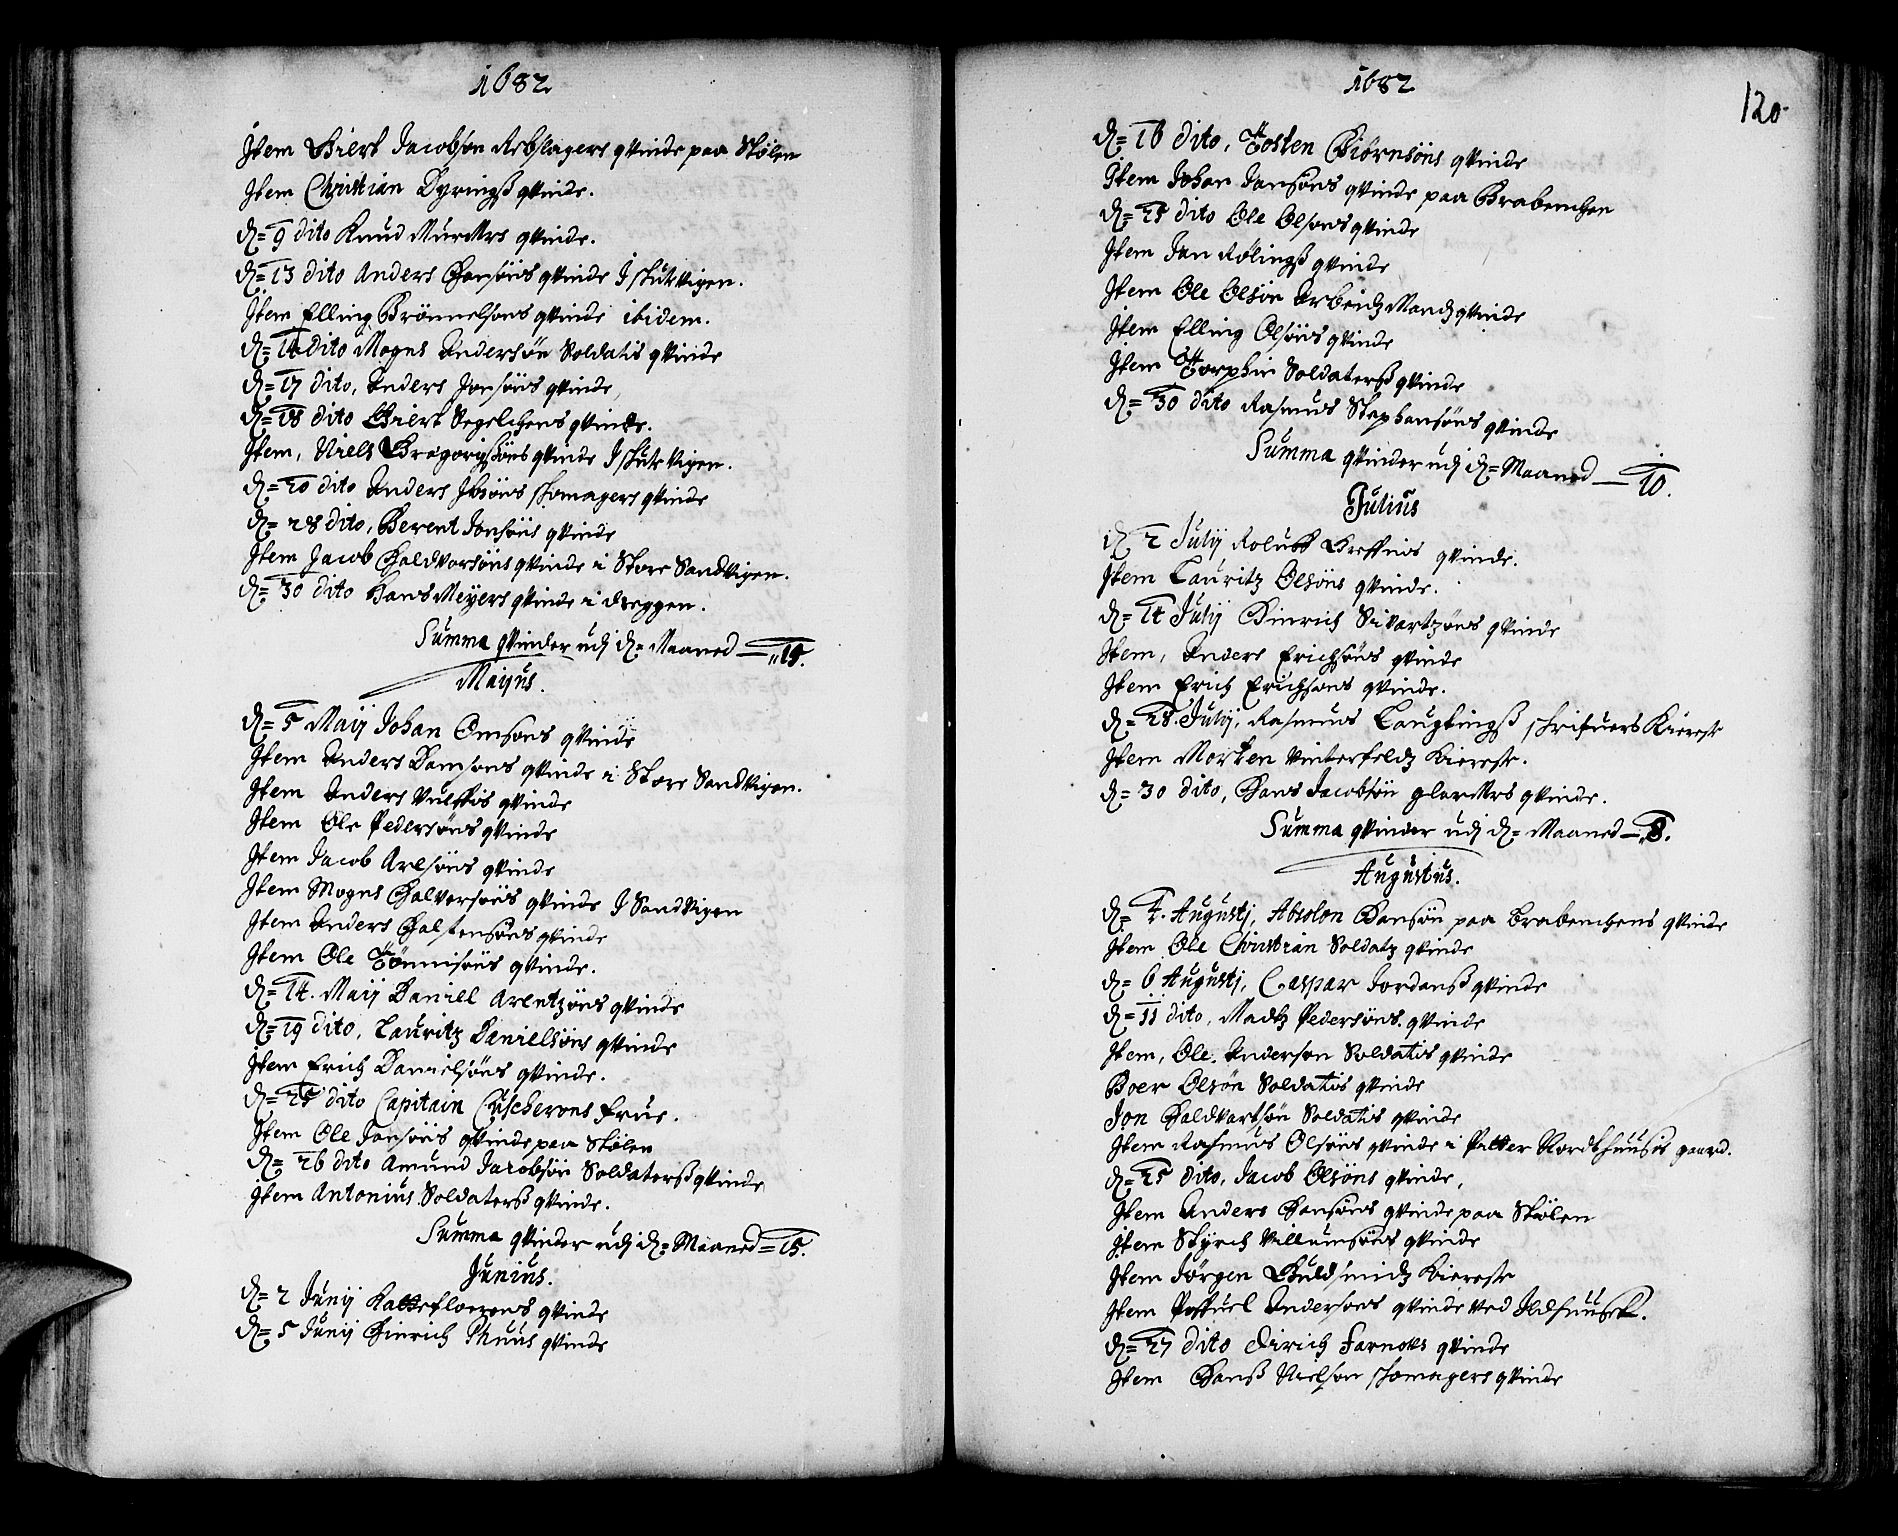 1682
Item Giert Jacobsøn Rebslagers qvinde paa Stølen
Item Christian Dyringß qvinde.
D= 9 dito Knud MurMrs qvinde.
D= 13 dito Anders Hansøns qvinde I skutvigen.
Item Elling Brønnelsøns qvinde ibidem.
D= 14 dito Mogns Andersøn Soldatis qvinde
D= 17 dito, Anders Jonsøns qvinde,
D= 18 dito Giert Segelchens qvinde.
Item, Niels Gregorijsøns qvinde I skutvigen.
D= 20 dito Anders Ibsøns skomagers qvinde
D= 28 dito, Berent Jonsøns qvinde
Item Jacob Haldvorsøns qvinde i Store Sandvigen.
D= 30 dito Hans Meyers qvinde i dreggen.
Summa qvinder udj d= Maaned — 15.
Majus.
D= 5 Maij Johan Omsøns qvinde
Item Anders Damsøns qvinde i Store Sandvigen.
Item Anders Vulffs qvinde
Item Ole Pedersøns qvinde
Item Jacob Arlsøns qvinde
Item Mogns Halvorsøns qvinde I Sandvigen
Item Anders Halstensøns qvinde
Item Ole Tønnisøns qvinde.
D= 14. Maij Daniell Arentzøns qvinde
D= 19 dito, Lauritz Danielsøns qvinde
Item Erich Danielsøns qvinde.
D= 25 dito Capitain Cuscherons frue.
Item Ole Jansøns qvinde paa Stølen
D= 26 dito Amund Jacobsøn Soldaterß qvinde
Item Antonius Soldaterß qvinde.
Summa qvinder udj d= Maaned = 15.
Junius.
D= 2 Junij qvinde
D= 5 Junij Hinrich Thuus qvinde
1682
120
D= 16 dito, Tosten Biørnsøns qvinde
Item Johan Jansøns qvinde paa Brabenchen
D= 25 dito Ole Olsøns qvinde
Item Jan Rølingß qvinde
Item Ole Olsøn Arbeidz Mandz qvinde
Item Elling Olsøns qvinde
Item Torphin Soldaterß qvinde
D= 30 dito Rasmus Stephansøns qvinde
Summa qvinder udj d= Maaned — 10.
Julius
D 2 Julij Roluff Greffnis qvinde.
Item Lauritz Olsøns qvinde.
D= 14 Julij Hinrich Sivartzøns qvinde
Item, Anders Erichsøns qvinde
Item Erich Erichsøns qvinde.
D= 28. Julij, Rasmus skrifuers Kiereste
Item Morten Vinterfeldz Kiereste.
D= 30 dito, Hans Jacobsøn glarMrs qvinde.
Summa qvinder udj d= Maaned — 8.
Augustus.
D= 4. Augustj, Absolon Hansøn paa Brabenchens qvinde
Item Ole Christian Soldatz qvinde
D= 6 Augustj, Caspar Jordanß qvinde
D= 11 dito, Madtz Pedersøns qvinde
Item, Ole Andersøn Soldatis qvinde
Boer Olsøn Soldatis qvinde
Jon Haldvartsøn Soldatis qvinde
Item Rasmus Olsøns qvinde i Petter Nordthuusis gaard.
D= 25 dito, Jacob Olsøns qvinde,
Item Anders Hansøns qvinde paa Stølen
Item Styrch Villumsøns qvinde
Item Jørgen Guldsmidz Kiereste
Item Poffuel Andersøns qvinde ved Ildhuuset.
D= 27 dito Dirich Farnols qvinde
Item Hanß Nielsøn skomagers qvinde